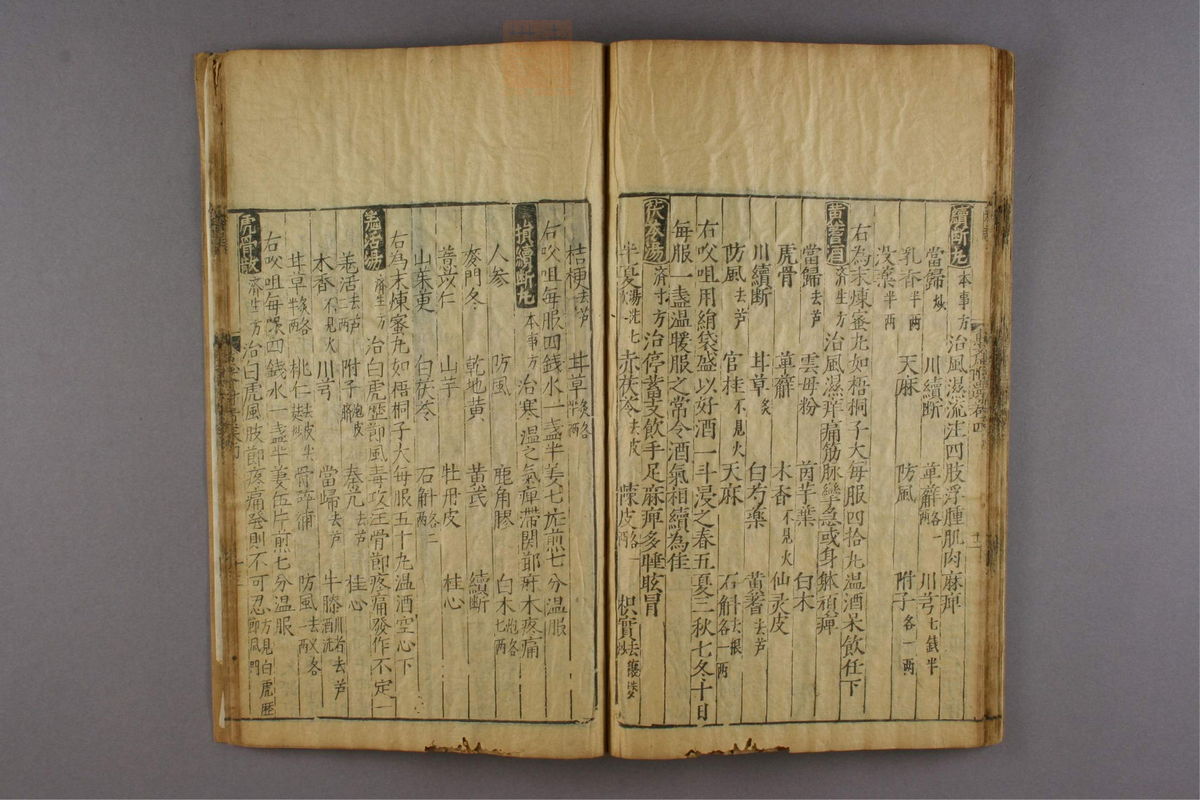 續斷丸 本事方 治風濕流注四肢浮腫肌肉麻痺
當歸炒 川續斷 萆薢各一兩 川芎七錢半
乳香半兩 天麻 防風 附子各一兩
沒藥半兩
右為末煉蜜丸如梧桐子大每服四拾丸温酒米飲任下
黄蓍酒 濟生方 治風濕痺痛筋脉攣急或身躰頑痺
當歸去芦 雲母粉 茵芋葉 白木
虎骨 萆薢 木香不見火 仙灵皮
川續斷 甘草炙 白芍藥 黄蓍去芦
防風去芦 官桂不見火 天麻 石斛去根各一兩
右㕮咀用絹袋盛以好酒一斗浸之春五夏三秋七冬十日
每服一盞温暖服之常令酒氣相續為佳
茯苓湯 濟生方 治停蓄支飲手足麻痺多睡眩冒
半夏湯洗七次 赤茯苓去皮 陳皮各一兩 枳實去穰
桔梗去芦 甘草炙各半兩
右㕮咀每服四錢水一盞半姜七片煎七分温服
續斷丸 本事方 治寒温之氣痺滯関節麻木疼痛
人参 防風 鹿角膠 白木炮各七兩
麥門冬 乾地黄 黄芪 續斷
薏苡仁 山芋 牡丹皮 桂心
山茱萸 白茯苓 石斛各二兩
右為末煉蜜丸如梧桐子大每服五十丸温酒空心下
羗活湯 濟生方 治白虎歷節風毒攻注骨節疼痛發作不定
羗活去芦二兩 附子炮去皮臍 秦艽去芦 桂心
木香不見火 川芎 當歸去芦 牛膝川者去芦酒洗
甘草炙各半兩 桃仁去皮 骨碎補 防風去义各一兩
右㕮咀每服四錢水一盞半姜伍片煎七分温服
虎骨散 濟生方 治白虎風肢節疼痛發則不可忍方見白虎歷節風門